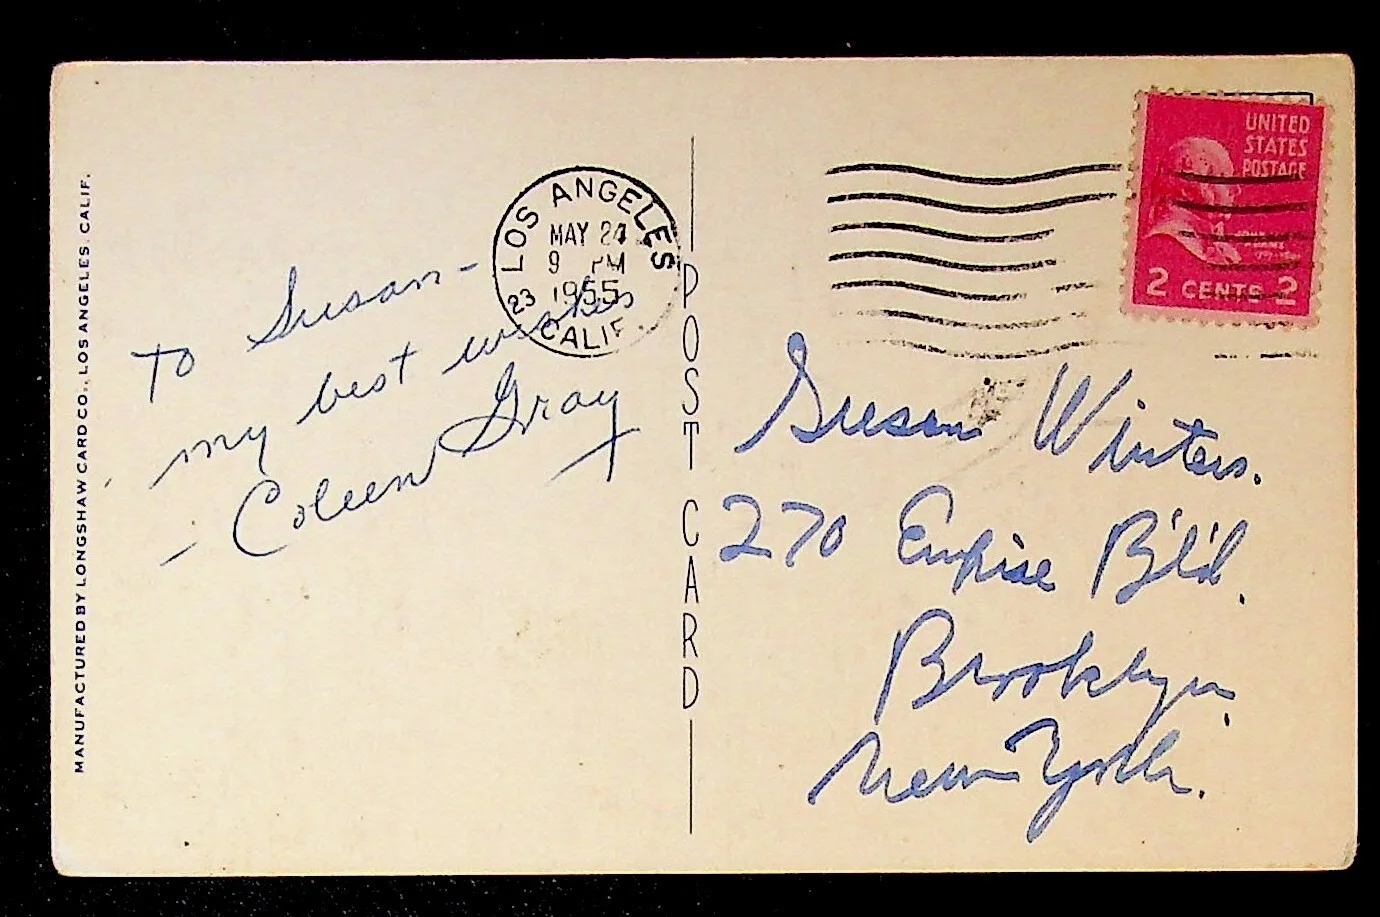 MANUFACTURED BY LONGSHAW CARD CO., LOS ANGELES, CALIF.
To Susan -
my best wishes
- Coleen Gray
LOS ANGELES
MAY 24
9 PM
1955
23 CALIF.
POST CARD
UNITED
STATES
POSTAGE
2 CENTS 2
Susan Winters.
270 Empire B'l'd.
Brooklyn,
New York.